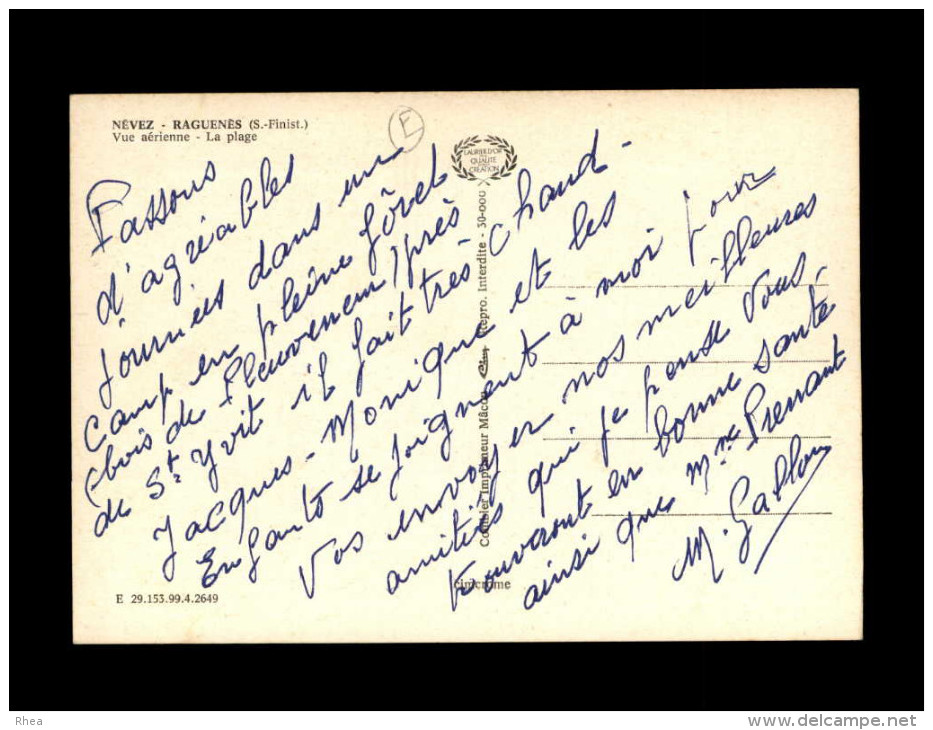 NÉVEZ - RAGUENÈS (S.-Finist.)
Vue aérienne - La plage
E
LAURIER D'OR
QUALITÉ
CRÉATION
Passons
d'agréables
journées dans un
camp en pleine fôret
(bois de Pleuven) près
de St Yvit il fait très chaud -
Jacques - Monique et les
Enfants se joignent à moi pour
vos envoyer nos meilleures
amitiés qui je pense vous
trouveront en bonne santé
ainsi que Mme
M. Gallou
Combier Imprimeur Mâcon Repro. Interdite - 30-000
cimcrome
E 29.153.99.4.2649
Rhea
www.delcampe.net